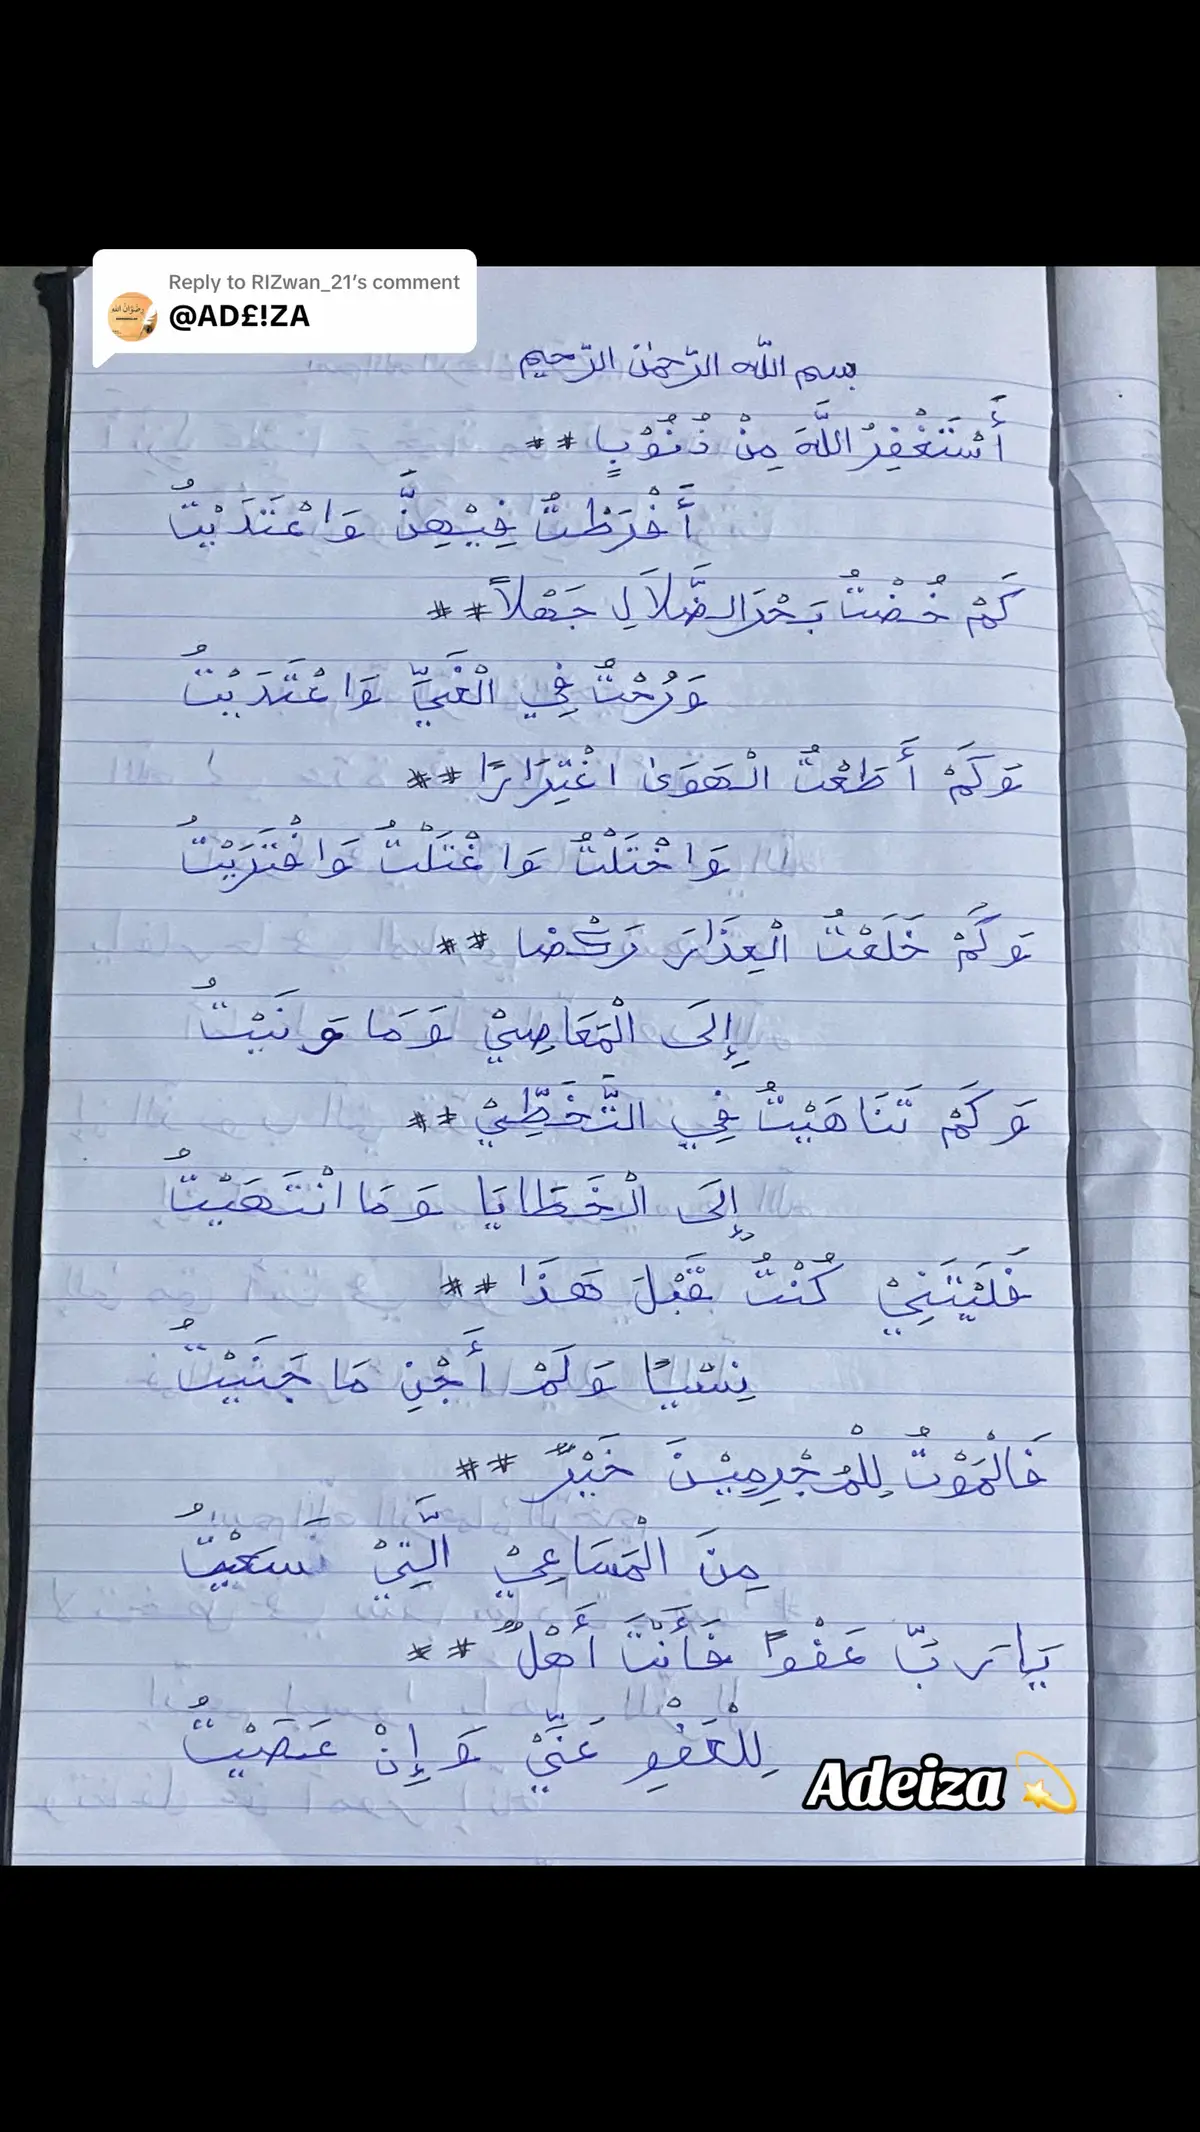 Reply to RIZwan_21's comment
@AD£!ZA
بسم الله الرّحمٰن الرّحيم
أَسْتَغْفِرُ اللَّهَ مِنْ ذُنُوْبٍ **
أَفْرَطْتُ فِيْهِنَّ وَاعْتَدَيْتُ
كَمْ خُضْتُ بَحْرَ الضَّلَالِ جَهْلاً **
وَرُحْتُ فِي الْغَيِّ وَاعْتَدَيْتُ
وَكَمْ أَطَعْتُ الْهَوَىٰ اغْتِرَارًا **
وَاخْتَلْتُ وَاغْتَلْتُ وَافْتَرَيْتُ
وَكَمْ خَلَعْتُ الْعِذَارَ رَكْضا **
إِلَى الْمَعَاصِيْ وَمَا وَنَيْتُ
وَكَمْ تَنَاهَيْتُ فِي التَّخَطِّيْ **
إِلَى الْخَطَايَا وَمَا انْتَهَيْتُ
فَلَيْتَنِيْ كُنْتُ قَبْلَ هَذَا **
نِسْيًا وَلَمْ أَجْنِ مَا جَنَيْتُ
فَالْمَوْتُ لِلْمُجْرِمِيْنَ خَيْرٌ **
مِنَ الْمَسَاعِيْ الَّتِيْ سَعَيْتُ
يَا رَبِّ عَفْوًا فَأَنْتَ أَهْلٌ **
لِلْعَفْوِ عَنِّيْ وَإِنْ عَصَيْتُ
Adeiza